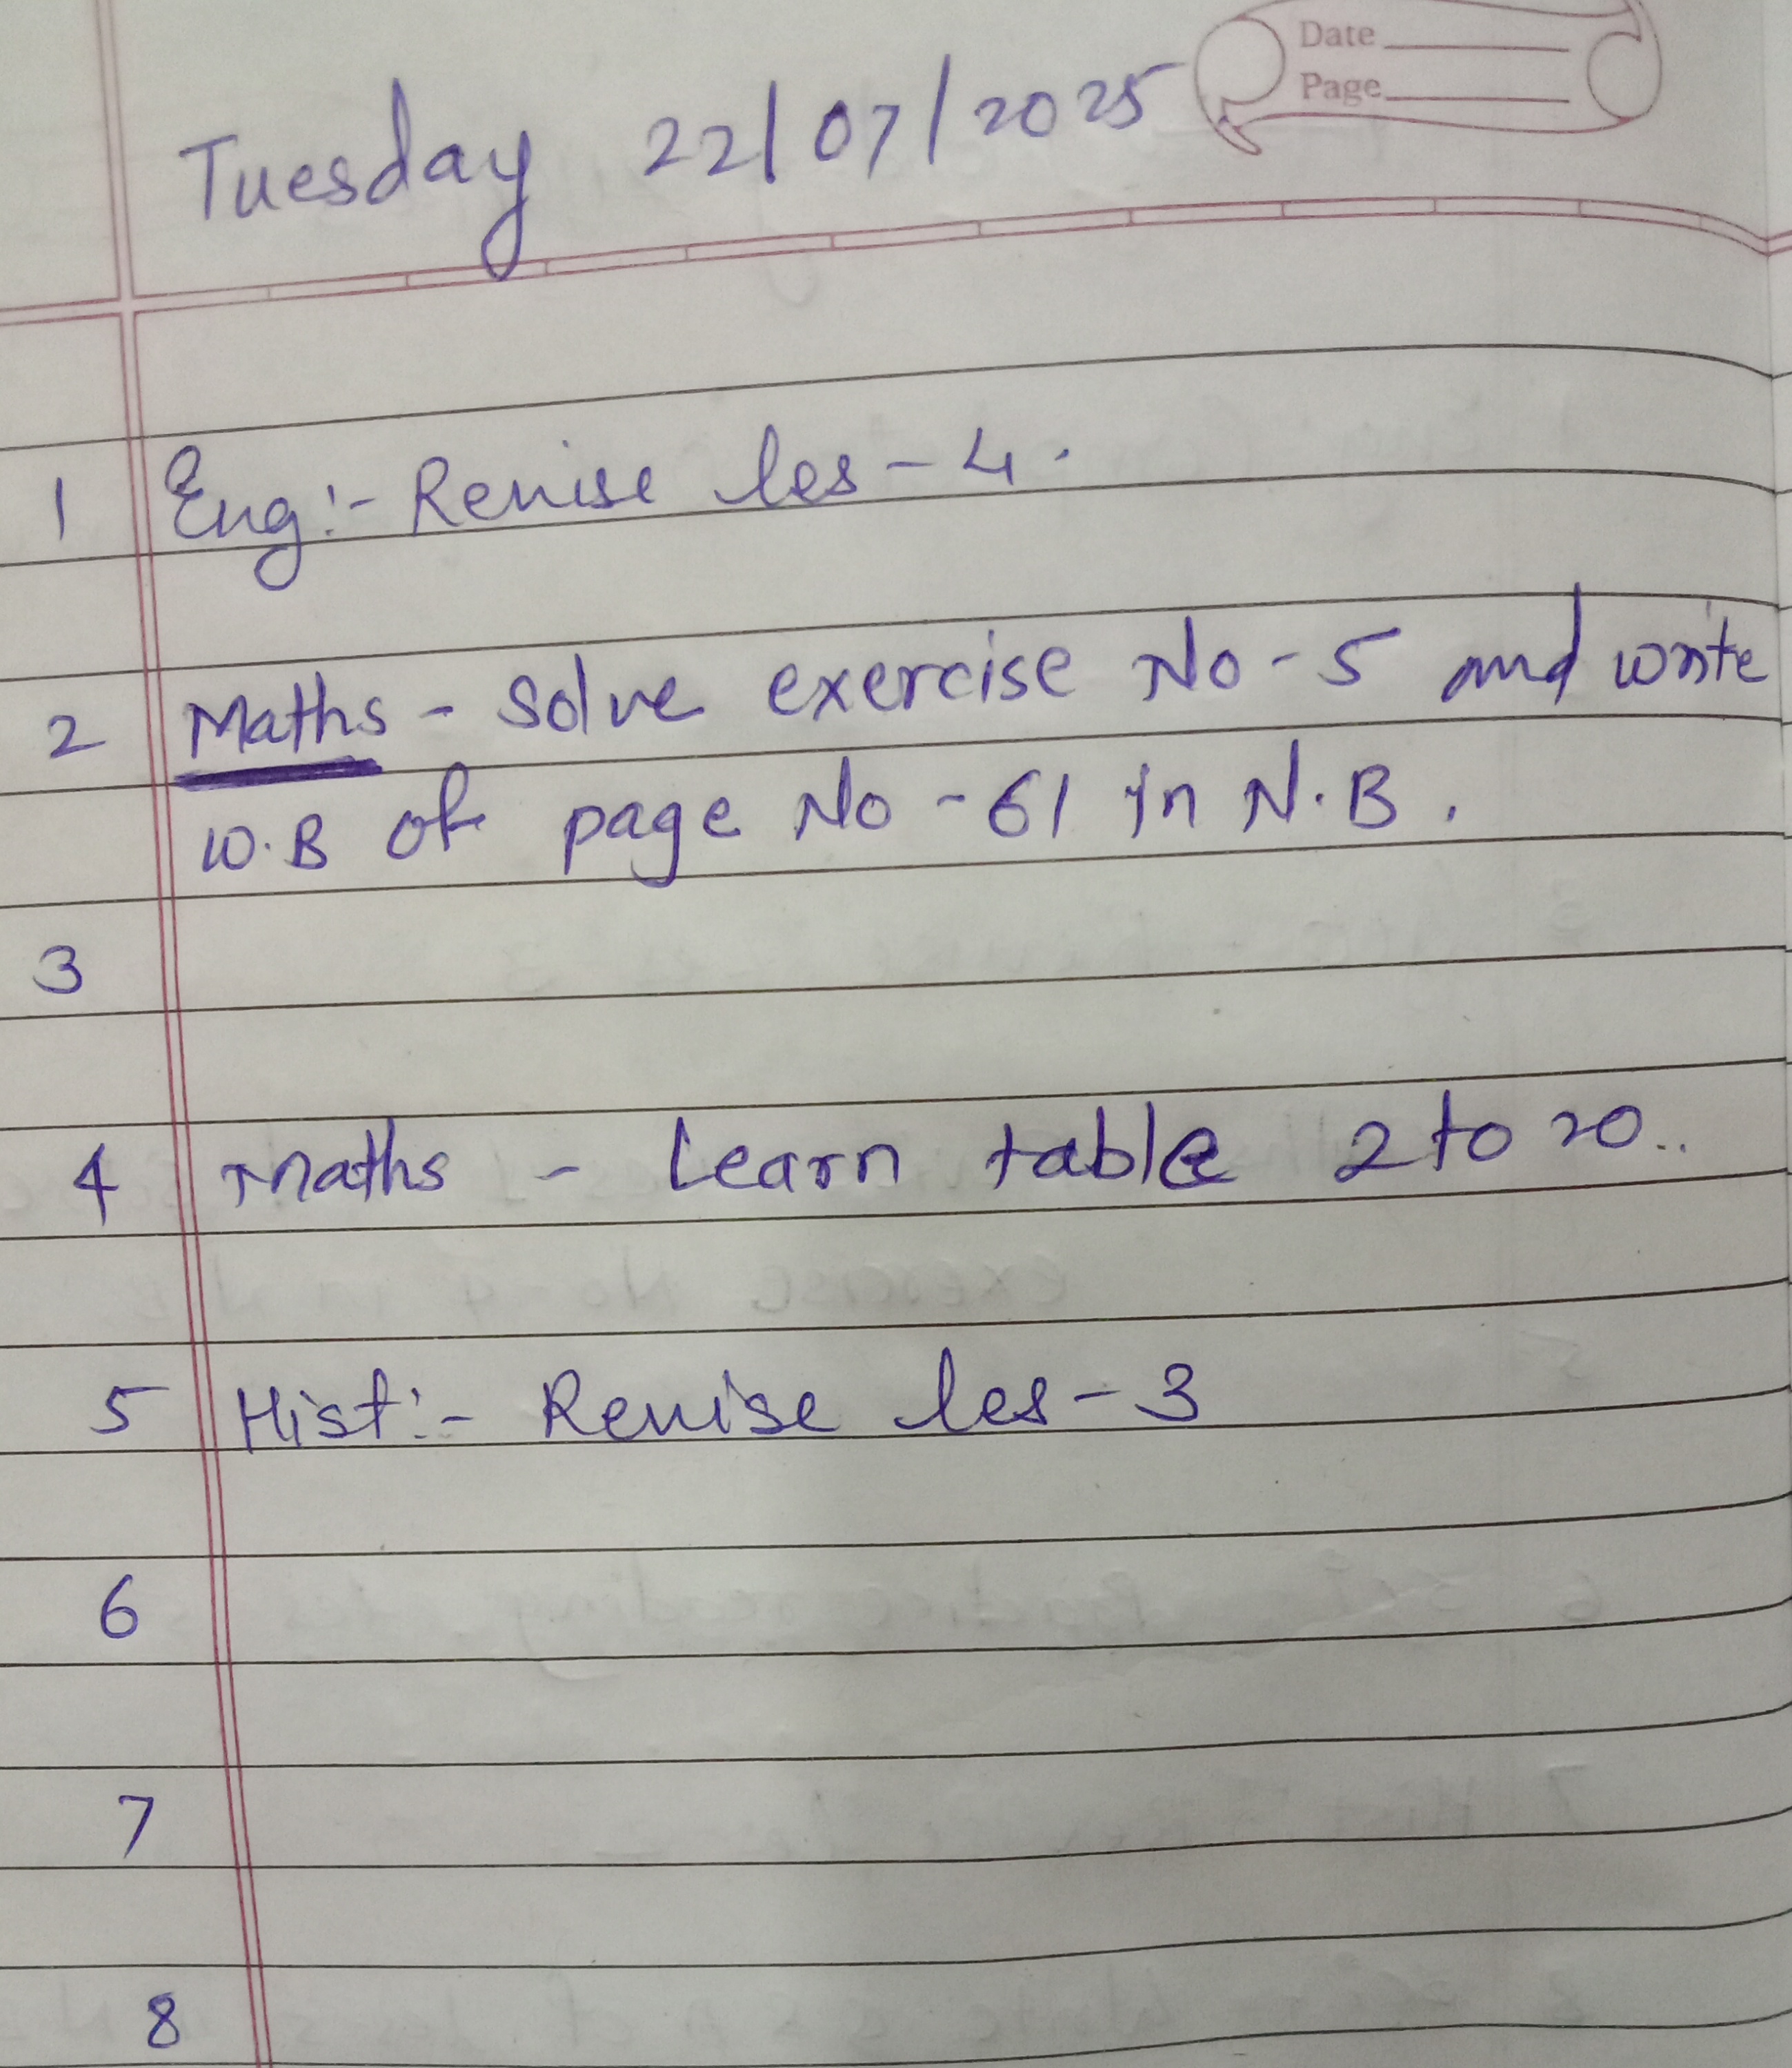 Date
Page
Tuesday 22/07/2025
1 Eng:- Revise les-4.
2 Maths - Solve exercise No-5 and write
W.B of page No-61 in N.B.
3
4 Maths - Learn table 2 to 20..
5 Hist:- Revise les-3
6
7
8